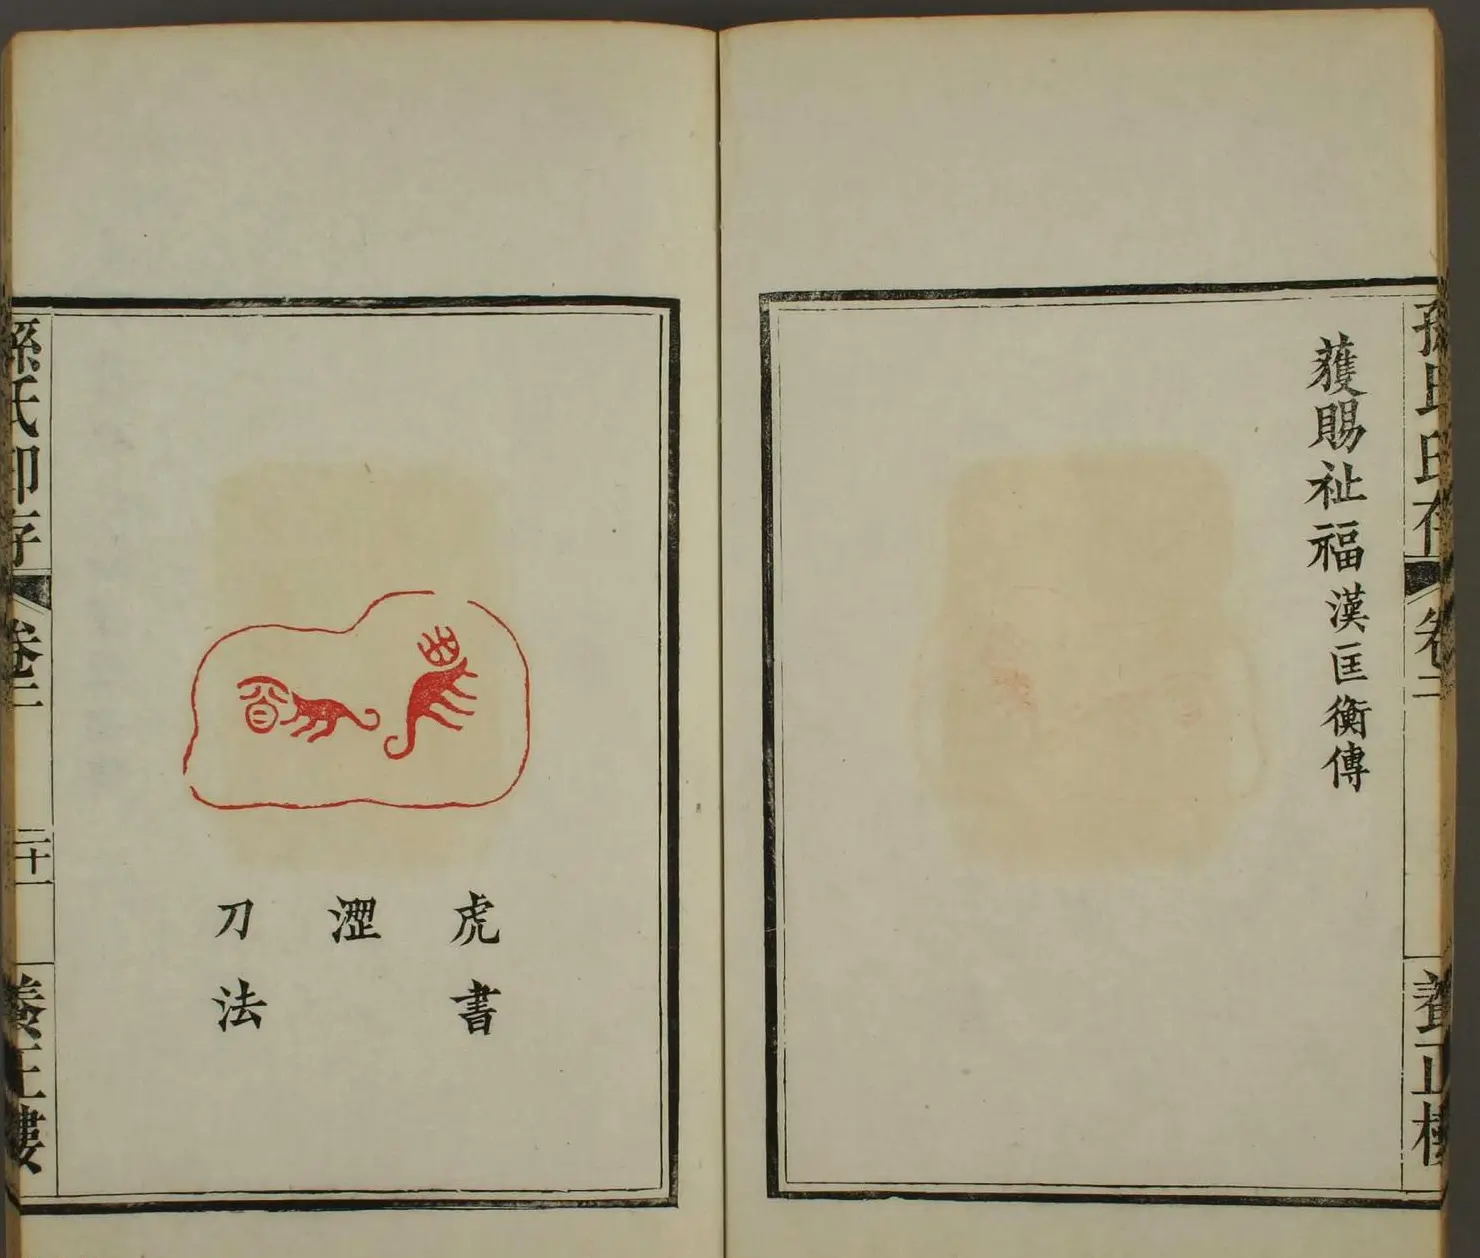 孫氏印存
卷二
養正樓
獲賜祉福漢匡衡傳
虎書
澀
刀法
孫氏印存
卷二
二十一
養正樓